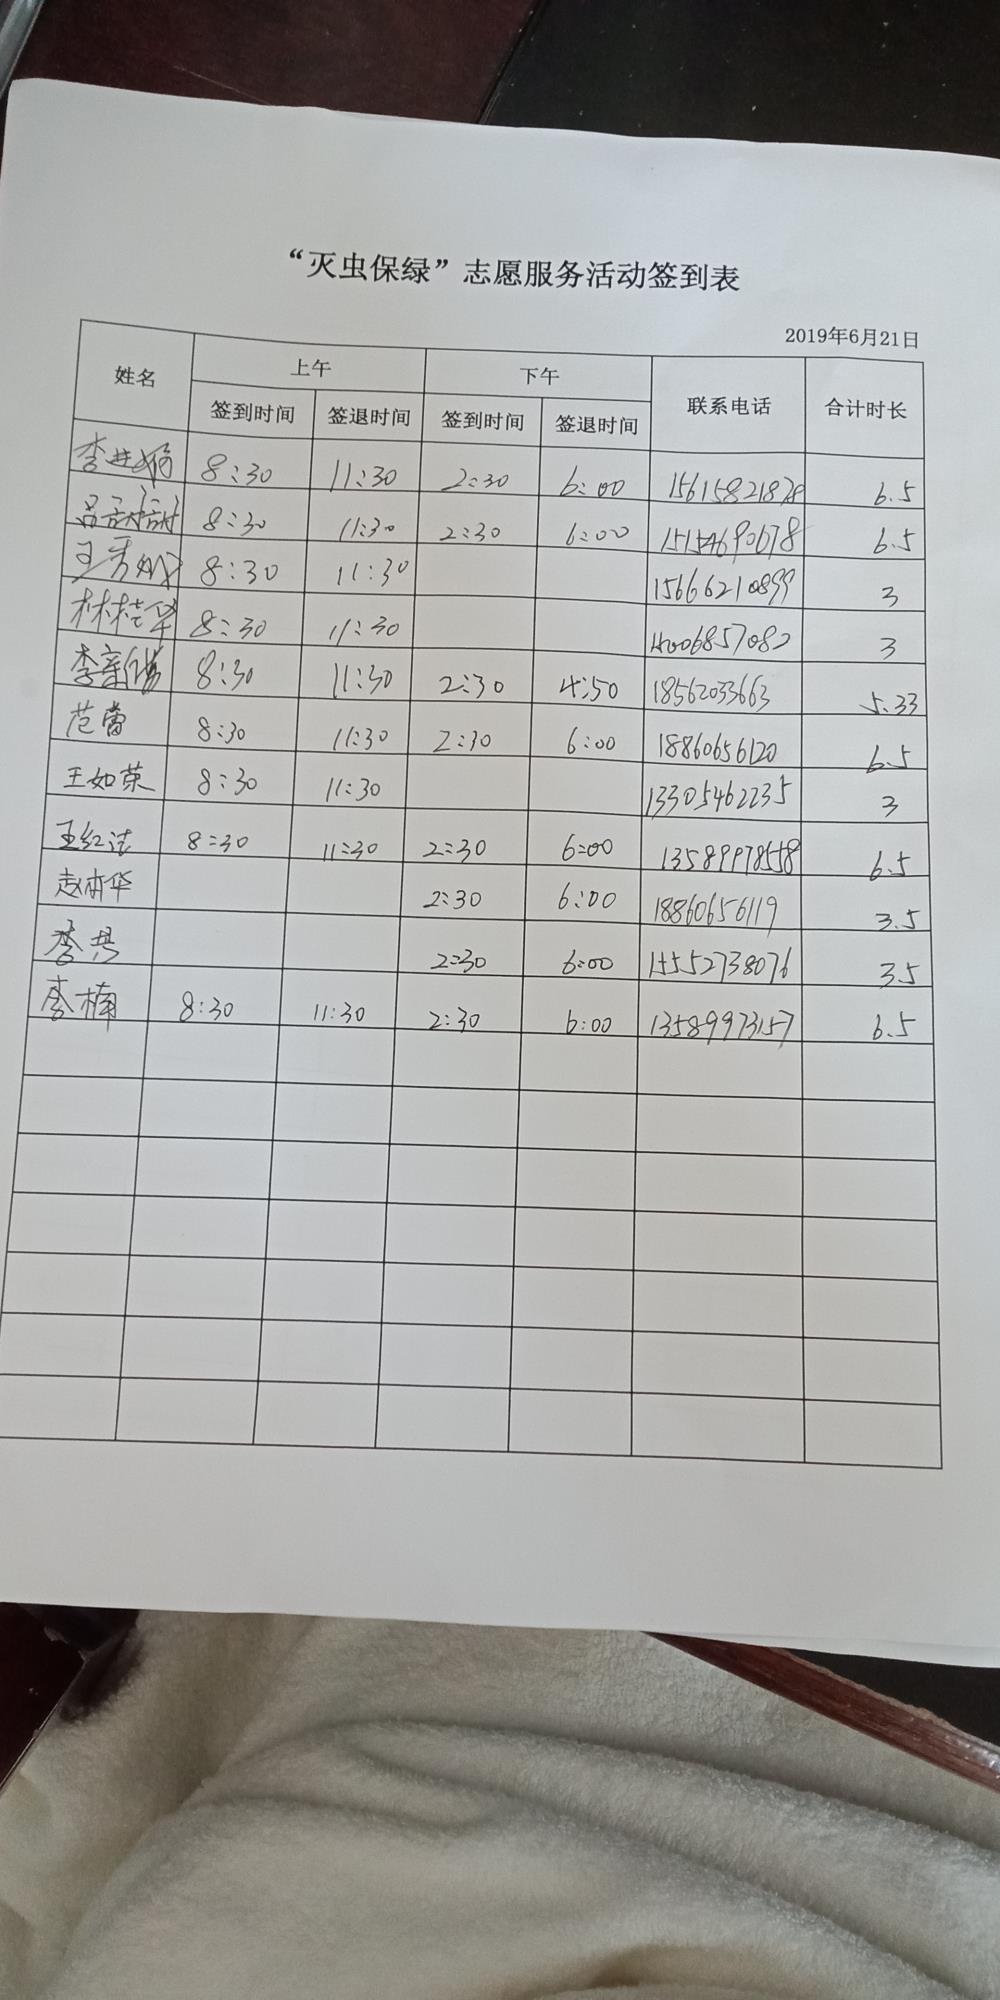 “灭虫保绿”志愿服务活动签到表
2019年6月21日
姓名 上午 下午 联系电话 合计时长
签到时间 签退时间 签到时间 签退时间
8:30 11:30 2:30 6:00 15615821828 6.5
吕甜甜 8:30 11:30 2:30 6:00 15154690678 6.5
王秀 8:30 11:30 15666210899 3
林桂华 8:30 11:30 6857082 3
李 8:30 11:30 2:30 4:50 18562033663 5.33
范蕾 8:30 11:30 2:30 6:00 18860656120 6.5
王如荣 8:30 11:30 13305462235 3
王红 8:30 11:30 2:30 6:00 13589978558 6.5
赵 华 2:30 6:00 18860656119 3.5
李 2:30 6:00 15552738076 3.5
李楠 8:30 11:30 2:30 6:00 13589973157 6.5